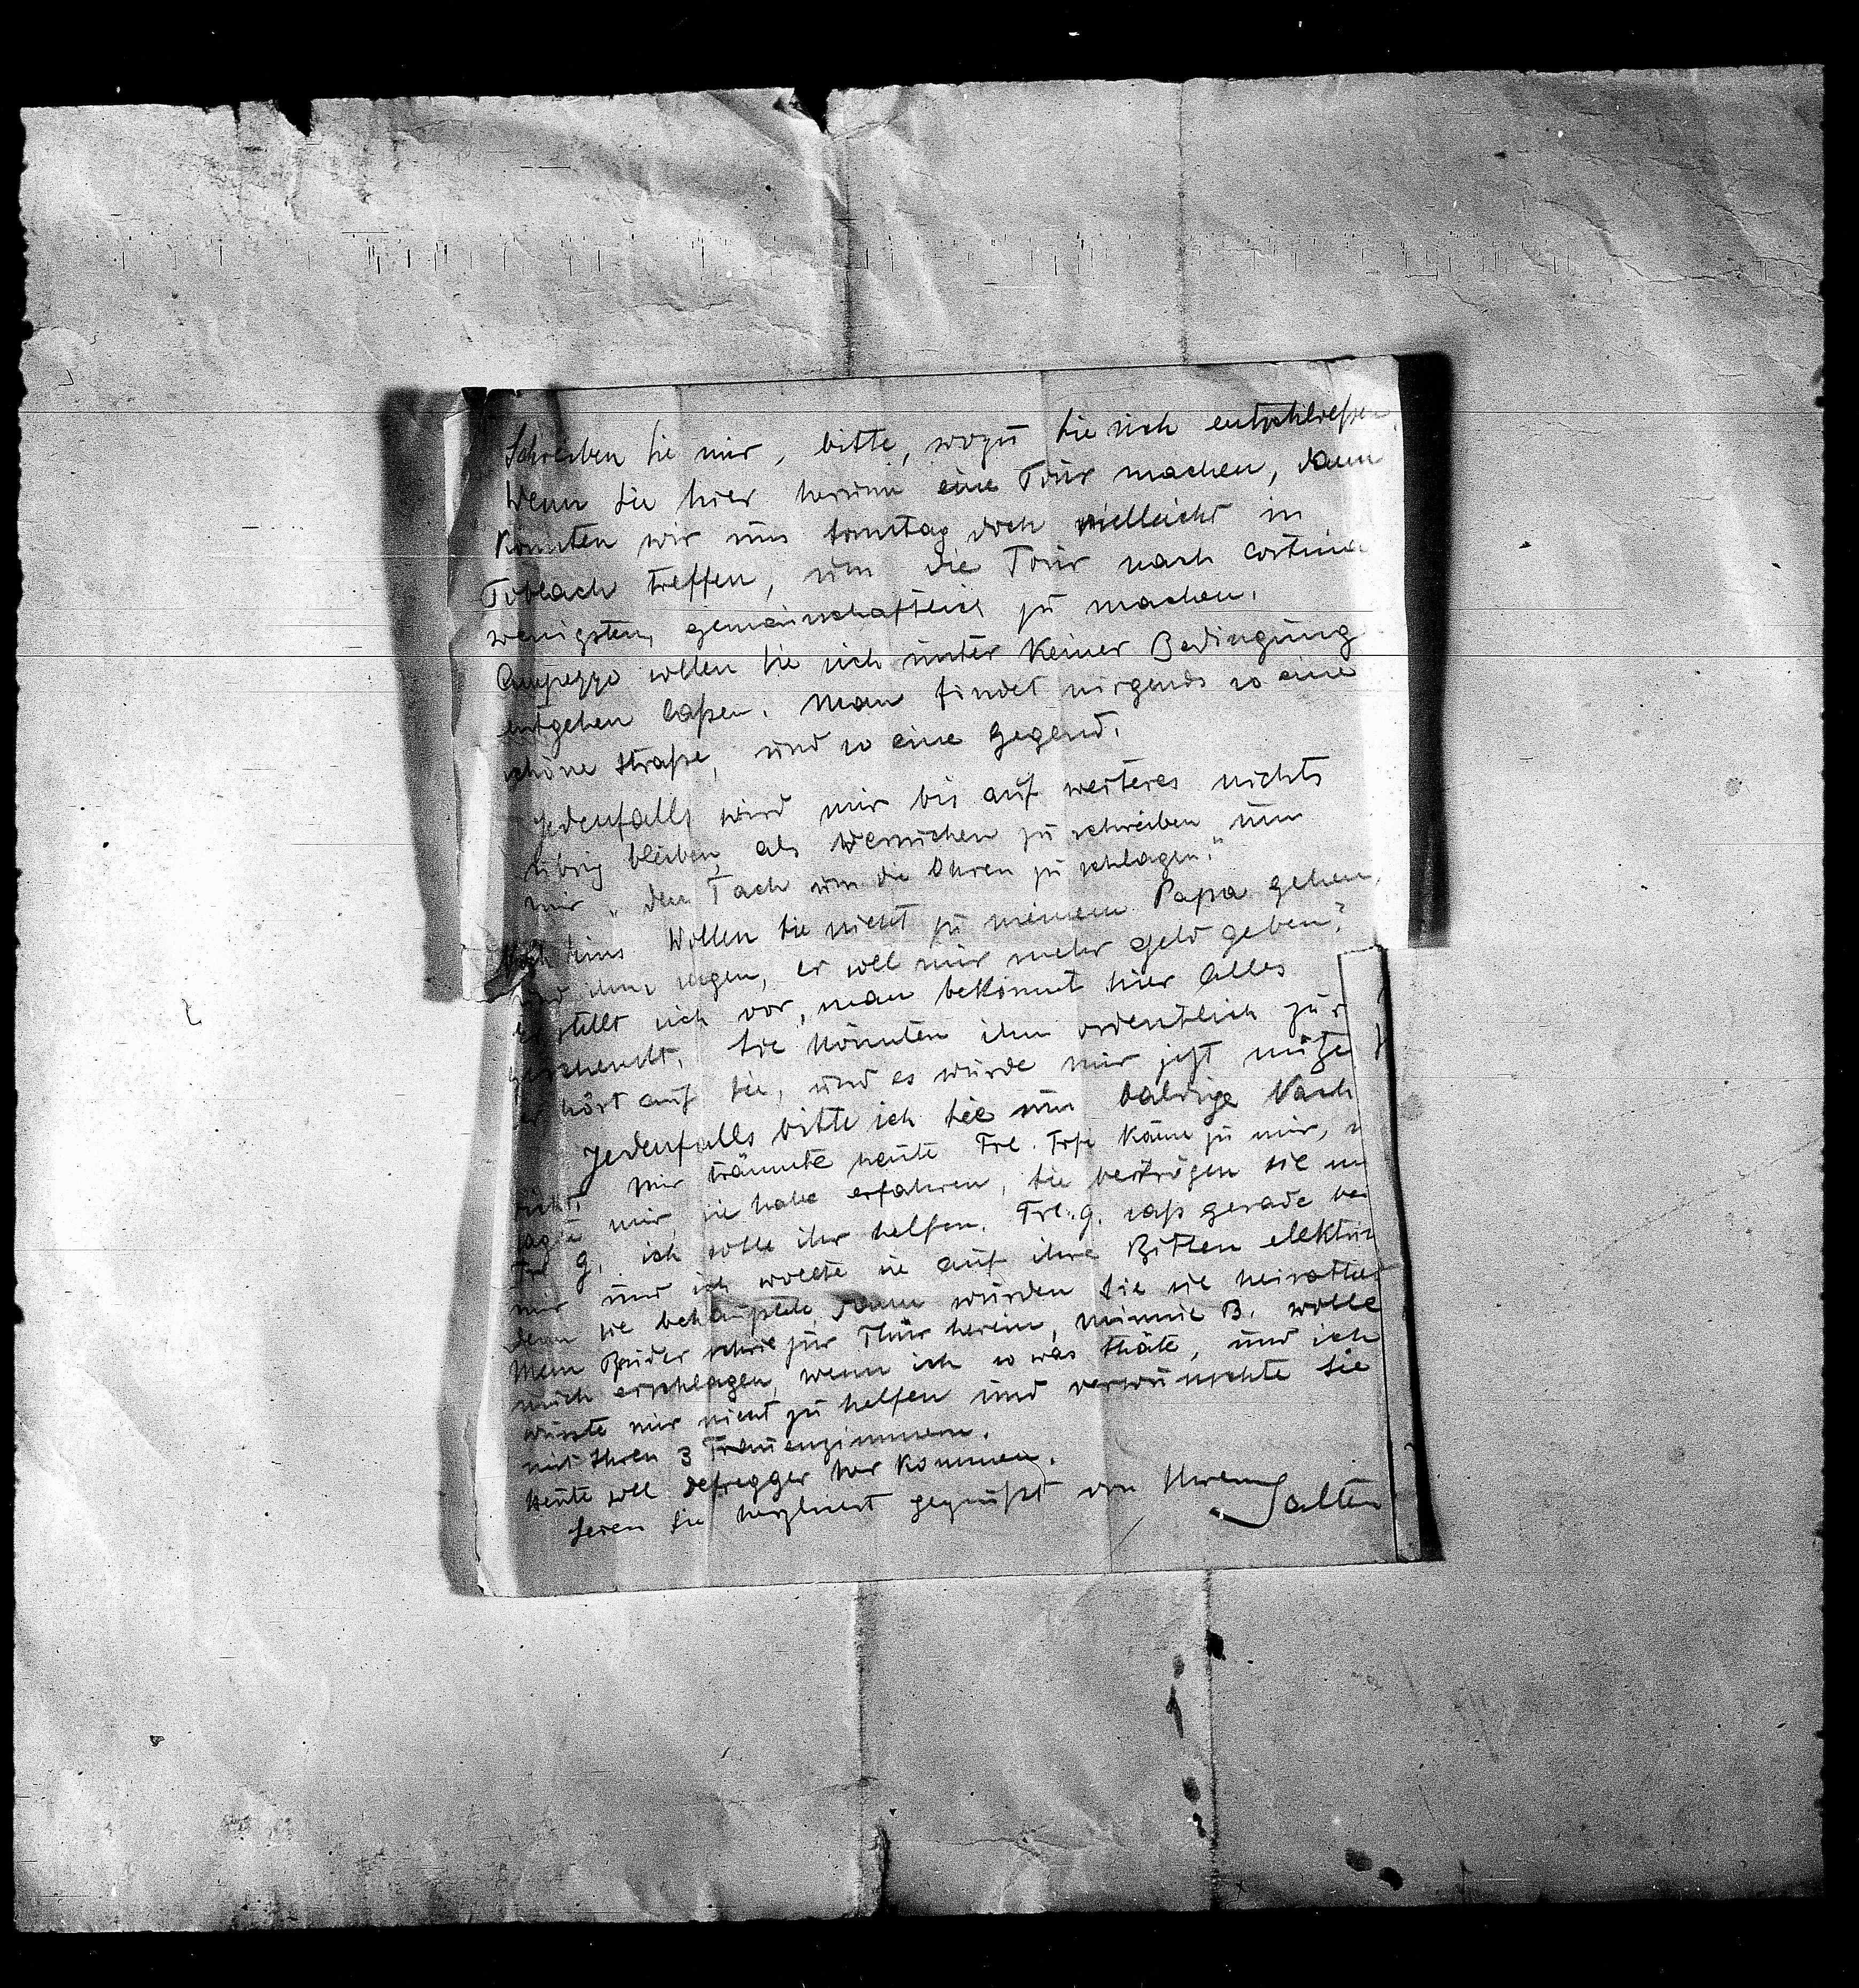 Schreiben Sie mir, bitte, wozu Sie sich entschließen.
Wenn Sie hier herum eine Tour machen, dann
könnten wir uns Sonntag doch vielleicht in
Toblach treffen, um die Tour nach Cortina
wenigstens gemeinschaftlich zu machen.
Ampezzo sollen Sie sich unter keiner Bedingung
entgehen laßen. Man findet nirgends so eine
schöne Straße, und so eine Gegend.
Jedenfalls wird mir bis auf weiteres nichts
übrig bleiben als zu schreiben um
mir „den Tach um die Ohren zu schlagen."
Noch Eins Wollen Sie nicht zu meinem Papa gehen,
und ihm sagen, er soll mir mehr Geld geben?
Er stellt sich vor, man bekömmt hier Alles
geschenkt. Sie könnten ihm ordentlich zur
er hört auf Sie, und es würde mir jetzt nütze
Jedenfalls bitte ich Sie um baldige Nach
richt. Mir träumte heute Frl. käme zu mir,
sagte mir, sie habe erfahren, Sie betrögen sie
Frl G. ich solle ihr helfen. Frl. G. saß gerade bei
mir und ich wollte sie auf ihre Bitten elektri
denn sie behauptete, dann würden Sie sie heirathen
Mein Bruder schrie zur Thür herein, Minnie B. wolle
mich erschlagen, wenn ich so was thäte, und ich
wusste mir nicht zu helfen und verwünschte Sie
mit Ihren 3 Frauenzimmern.
Heute soll Defregger her kommen.
Seien Sie herzlichst gegrüßt von Ihrem
Salten